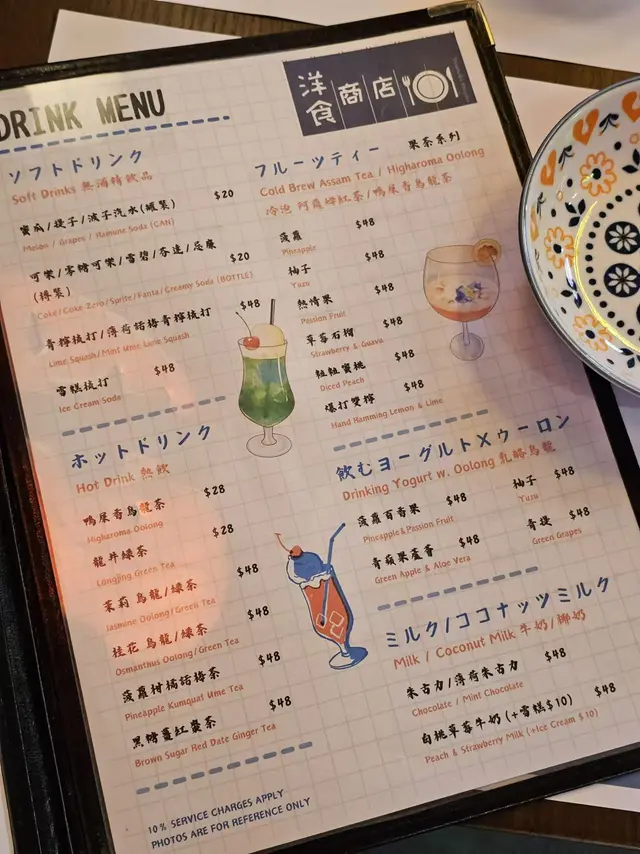 DRINK MENU
洋食商店
ソフトドリンク
Soft Drinks 無酒精飲品
蜜瓜/提子/波子汽水(罐裝) $20
Melon / Grapes / Ramune Soda (CAN)
可樂/零糖可樂/雪碧/芬達/忌廉 $20
(樽裝)
Coke/Coke Zero/Sprite/Fanta/Creamy Soda (BOTTLE)
青檸梳打/薄荷話梅青檸梳打 $48
Lime Squash/Mint Ume Lime Squash
雪糕梳打 $48
Ice Cream Soda
ホットドリンク
Hot Drink 熱飲
鴨屎香烏龍茶 $28
Higharoma Oolong
龍井綠茶 $28
Longjing Green Tea
茉莉烏龍/綠茶 $48
Jasmine Oolong/Green Tea
桂花烏龍/綠茶 $48
Osmanthus Oolong/Green Tea
菠蘿柑橘話梅茶 $48
Pineapple Kumquat Ume Tea
黑糖薑紅棗茶 $48
Brown Sugar Red Date Ginger Tea
10% SERVICE CHARGES APPLY
PHOTOS ARE FOR REFERENCE ONLY
フルーツティー 果茶系列
Cold Brew Assam Tea / Higharoma Oolong
冷泡 阿薩姆紅茶/鴨屎香烏龍茶
菠蘿 $48
Pineapple
柚子 $48
Yuzu
熱情果 $48
Passion Fruit
草莓石榴 $48
Strawberry & Guava
粒粒蜜桃 $48
Diced Peach
爆打雙檸 $48
Hand Hamming Lemon & Lime
飲むヨーグルト×ウーロン
Drinking Yogurt w. Oolong 乳酪烏龍
菠蘿百香果 $48 柚子 $48
Pineapple & Passion Fruit Yuzu
青蘋果蘆薈 $48 青提 $48
Green Apple & Aloe Vera Green Grapes
ミルク/ココナッツミルク
Milk / Coconut Milk 牛奶/椰奶
朱古力/薄荷朱古力 $48
Chocolate / Mint Chocolate
白桃草莓牛奶 (+雪糕$10) $48
Peach & Strawberry Milk (+Ice Cream $10)